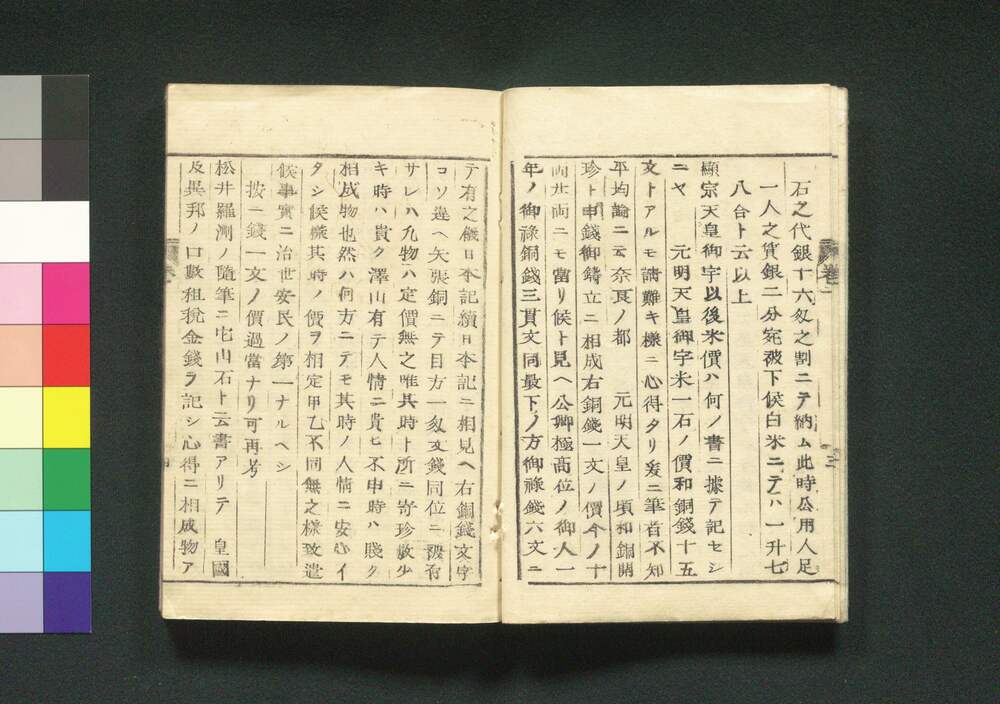 石之代銀十六匁之割ニテ納ム此時公用人足
一人之賃銀二分宛被下候白米ニテハ一升七
八合ト云以上
顯宗天皇御宇以後米價ハ何ノ書ニ據テ記セシ
ニヤ 元明天皇御宇米一石ノ價和銅錢十五
文トアルモ諸難キ樣ニ心得タリ爰ニ筆者不知
平均論ニ云奈良ノ都 元明天皇ノ頃和銅開
珍ト申錢御鑄立ニ相成右銅錢一文ノ價今ノ十
両廿両ニモ當リ候ト見ヘ公卿極高位ノ御人一
年ノ御祿銅錢三貫文同最下ノ方御祿錢六文ニ
テ有之儀日本記續日本記ニ相見ヘ右銅錢文字
コソ違ヘ矢張銅ニテ目方一匁文錢同位ニ有
サレハ凡物ハ定價無之唯其時ト所ニ寄珍敷少
キ時ハ貴ク澤山有テ人情ニ貴ヒ不申時ハ賤ク
相成物也然ハ何方ニテモ其時ノ人情ニ安心イ
タシ候樣其時ノ價ヲ相定甲乙不同無之樣致遣
候事實ニ治世安民ノ第一ナルヘシ
按ニ錢一文ノ價過當ナリ可再考
松井羅洲ノ隨筆ニ它山石ト云書アリテ 皇國
及異邦ノ口數租税金錢ヲ記シ心得ニ相成物ア